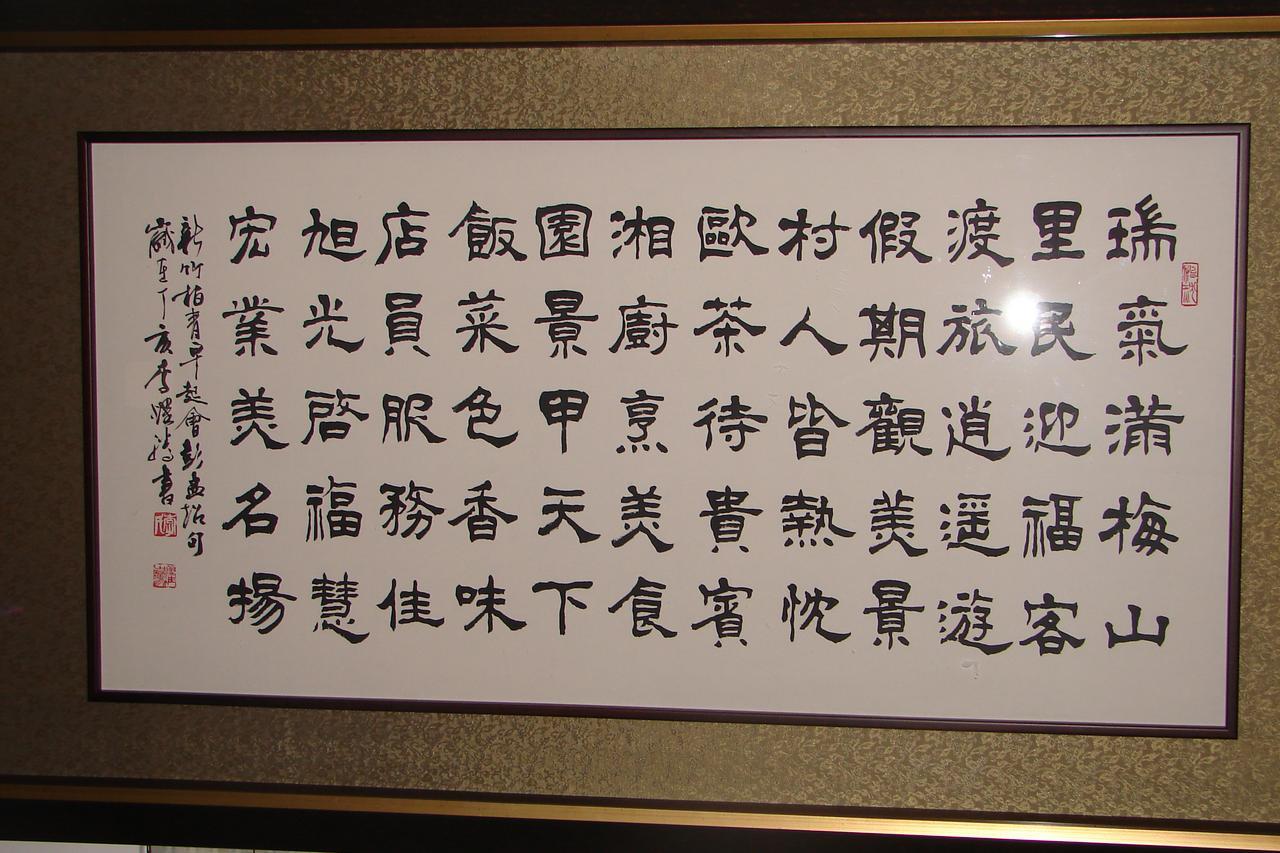 瑞氣滿梅山
里民迎福客
渡旅逍遥遊
假期觀美景
村人皆熱忱
歐茶待貴賓
湘廚烹美食
園景甲天下
飯菜色香味
店員服務佳
旭光啓福慧
宏業美名揚
新竹柏青早起會彭孟紹句
歲在丁亥李書